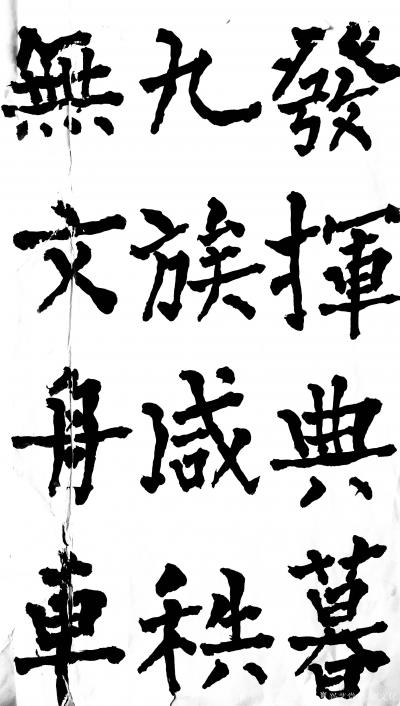 發揮典暮
九族咸秩
無文舟車